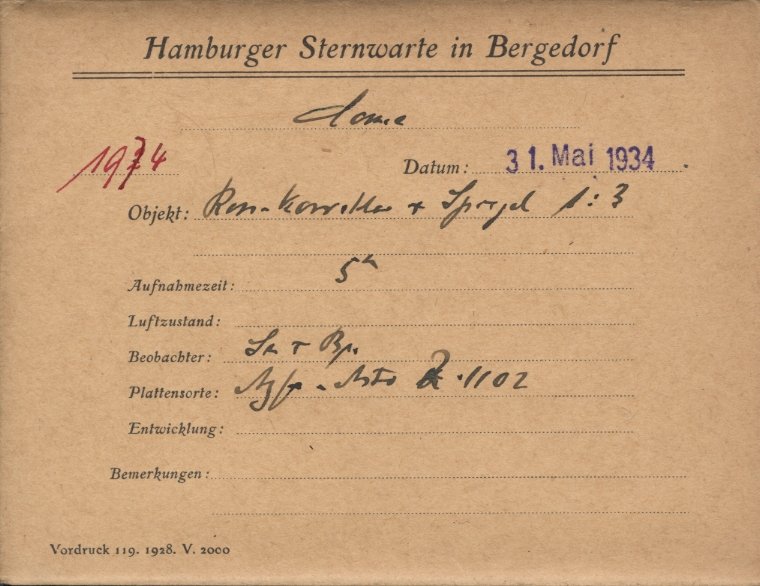 Hamburger Sternwarte in Bergedorf
Datum: 31. Mai 1934
Objekt: + Spiegel 1:3
Aufnahmezeit: 5h
Luftzustand:
Beobachter:
Plattensorte: 1102
Entwicklung:
Bemerkungen:
Vordruck 119. 1928. V. 2000